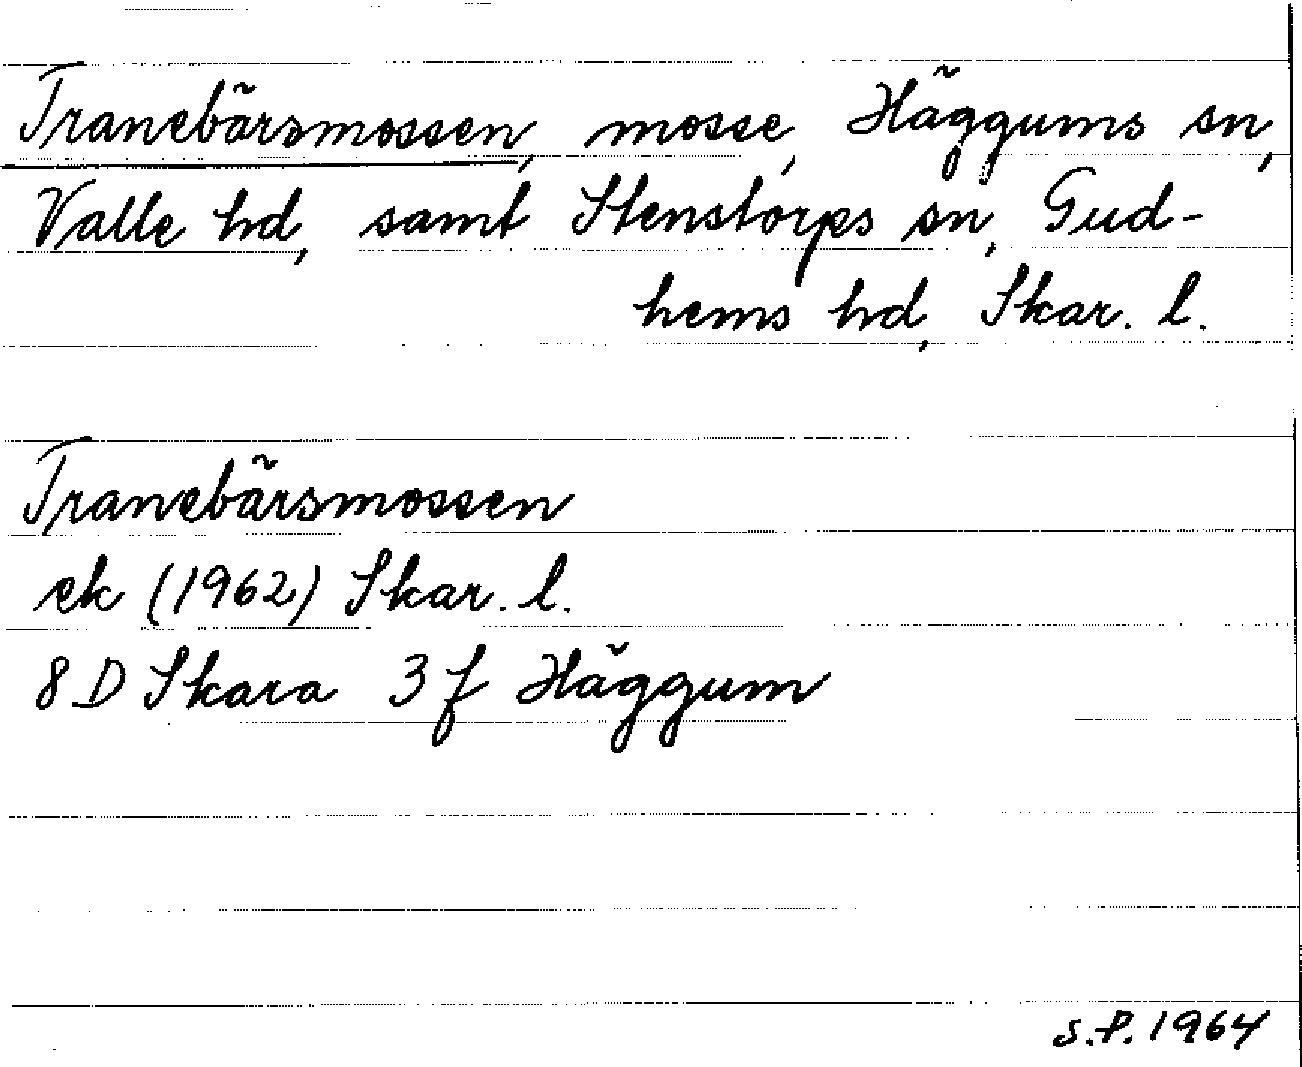 Tranebärsmossen, mosse, Häggums sn,
Valle hd, samt Stenstorps sn, Gud-
hems hd, Skar. l.
Tranebärsmossen
ek (1962) Skar. l.
8 D Skara 3 f Häggum
S.P. 1964